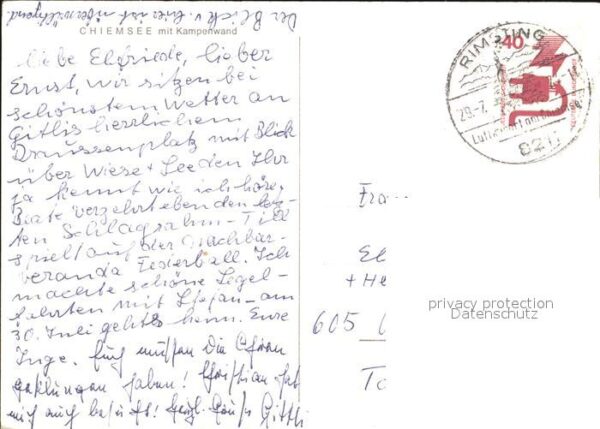 Der Blick v. hier ist überwältigend.
CHIEMSEE mit Kampenwand
Liebe Elfriede, lieber
Ernst, wir sitzen bei
schönstem Wetter an
Gitlis herrlichem
Draussenplatz mit Blick
über Wiese + See den Ihr
ja kennt wie ich höre,
verzehrt eben den letz-
ten Schlagrahm - Till
spielt auf der Nachbar-
veranda Federball. Ich
machte schöne Segel-
fahrten mit Stefan - am
30. Juli gehts heim. Eure
Inge.
haben! Christian hat
mich auch besucht! Herzl. Grüße Gittli
RIMSTING
40
29.-7.
Luftkurort
821
Fra
El
+ He
605
To
privacy protection
Datenschutz